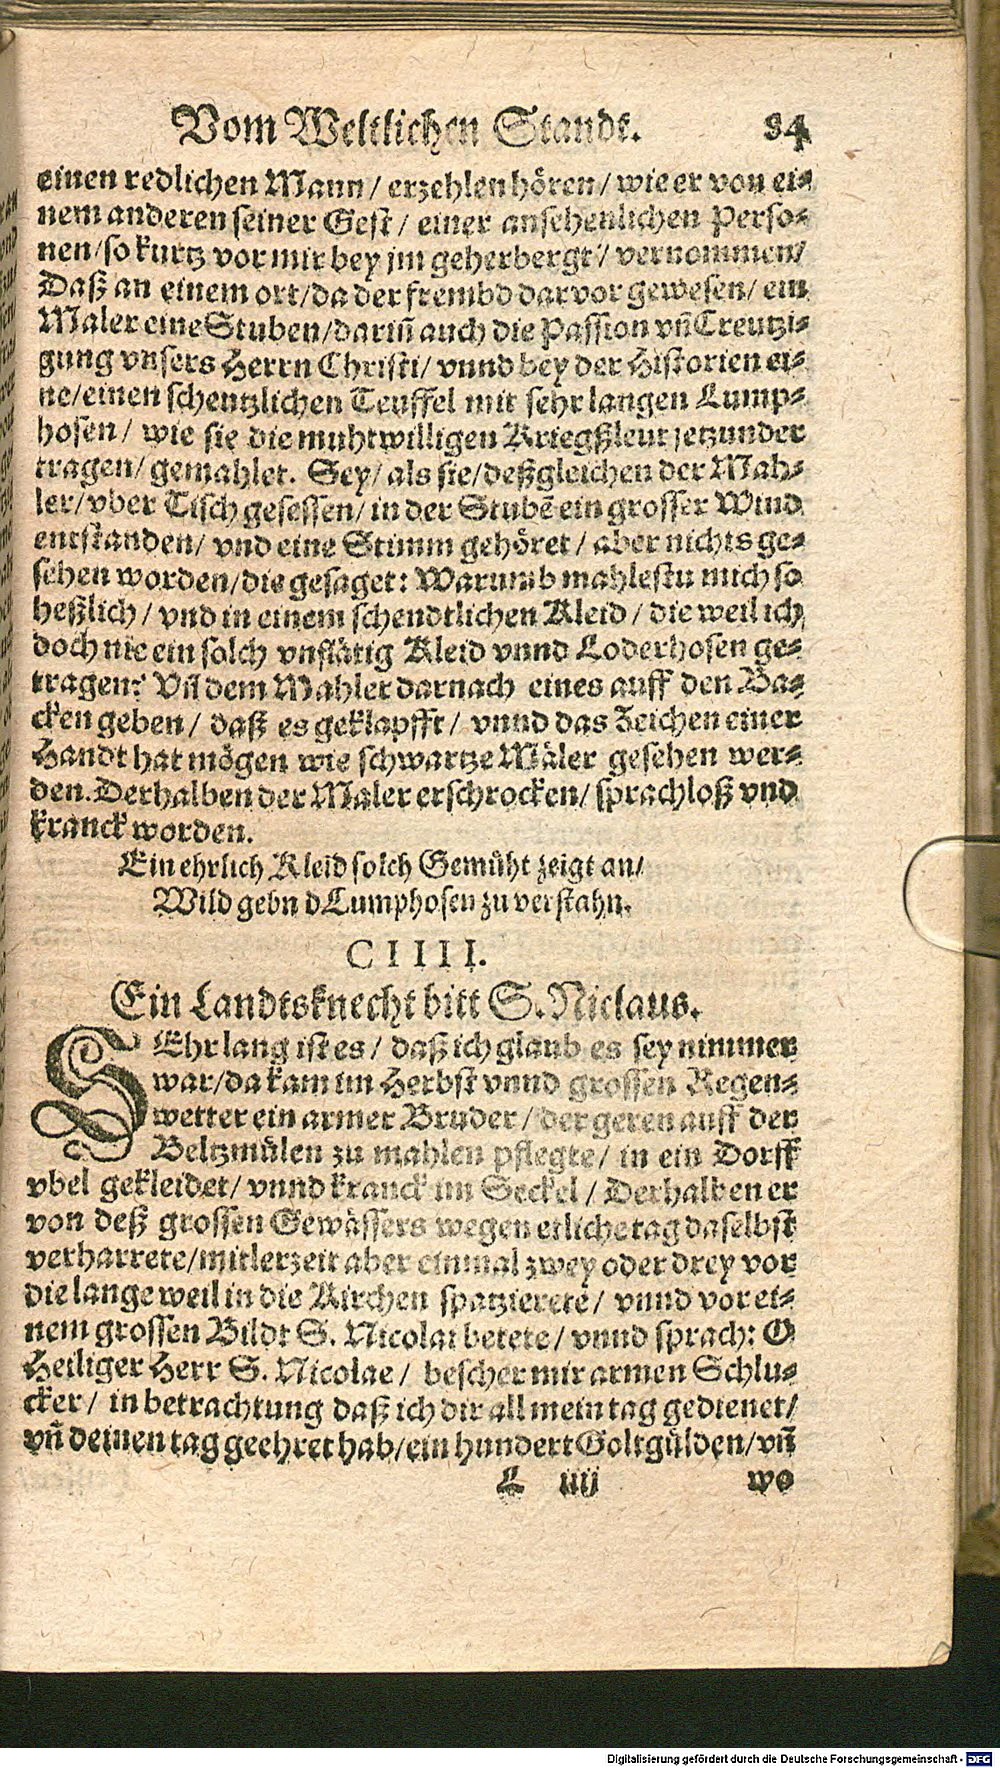 Vom Weltlichen Stande. 84
einen redlichen Mann / erzehlen hören / wie er von ei⸗
nem anderen seiner Gest / einer ansehenlichen Perso⸗
nen / so kurtz vor mir bey jm geherbergt / vernommen/
Daß an einem ort / da der frembd darvor gewesen / ein
Maler eine Stuben / dariñ auch die Passion vñ Creutzi⸗
gung vnsers Herrn Christi / vnnd bey der Historien ei⸗
ne / einen scheutzlichen Teuffel mit sehr langen Lump⸗
hosen / wie sie die muhtwilligen Kriegßleut jetzunder
tragen / gemahlet. Sey / als sie / deßgleichen der Mah⸗
ler / vber Tisch gesessen / in der Stubẽ ein grosser Wind
entstanden / vnd eine Stimm gehöret / aber nichts ge⸗
sehen worden / die gesaget: Warumb mahlestu mich so
heßlich / vnd in einem schendtlichen Kleid / die weil ich
doch nie ein solch vnflätig Kleid vnnd Loderhosen ge⸗
tragen? Vñ dem Mahler darnach eines auff den Ba⸗
cken geben / daß es geklapfft / vnnd das Zeichen einer
Handt hat mögen wie schwartze Mäler gesehen wer⸗
den. Derhalben der Maler erschrocken / sprachloß vnd
kranck worden.
Ein ehrlich Kleid solch Gemüht zeigt an/
Wild gebn d Lumphosen zu verstahn.
CIIII.
Ein Landtsknecht bitt S. Niclaus.
SEhr lang ist es / daß ich glaub es sey nimmer
war / da kam im Herbst vnnd grossen Regen⸗
wetter ein armer Bruder / der geren auff der
Beltzmülen zu mahlen pflegte / in ein Dorff
vbel gekleidet / vnnd kranck im Seckel / Derhalben er
von deß grossen Gewässers wegen etliche tag daselbst
verharrete / mitlerzeit aber einmal zwey oder drey vor
die lange weil in die Kirchen spatzierete / vnnd vor ei⸗
nem grossen Bildt S. Nicolai betete / vnnd sprach: O
Heiliger Herr S. Nicolae / bescher mir armen Schlu⸗
cker / in betrachtung daß ich dir all mein tag gedienet/
vñ deinen tag geehret hab / ein hundert Goltgülden / vñ
L iiij wo
Digitalisierung gefördert durch die Deutsche Forschungsgemeinschaft - DFG